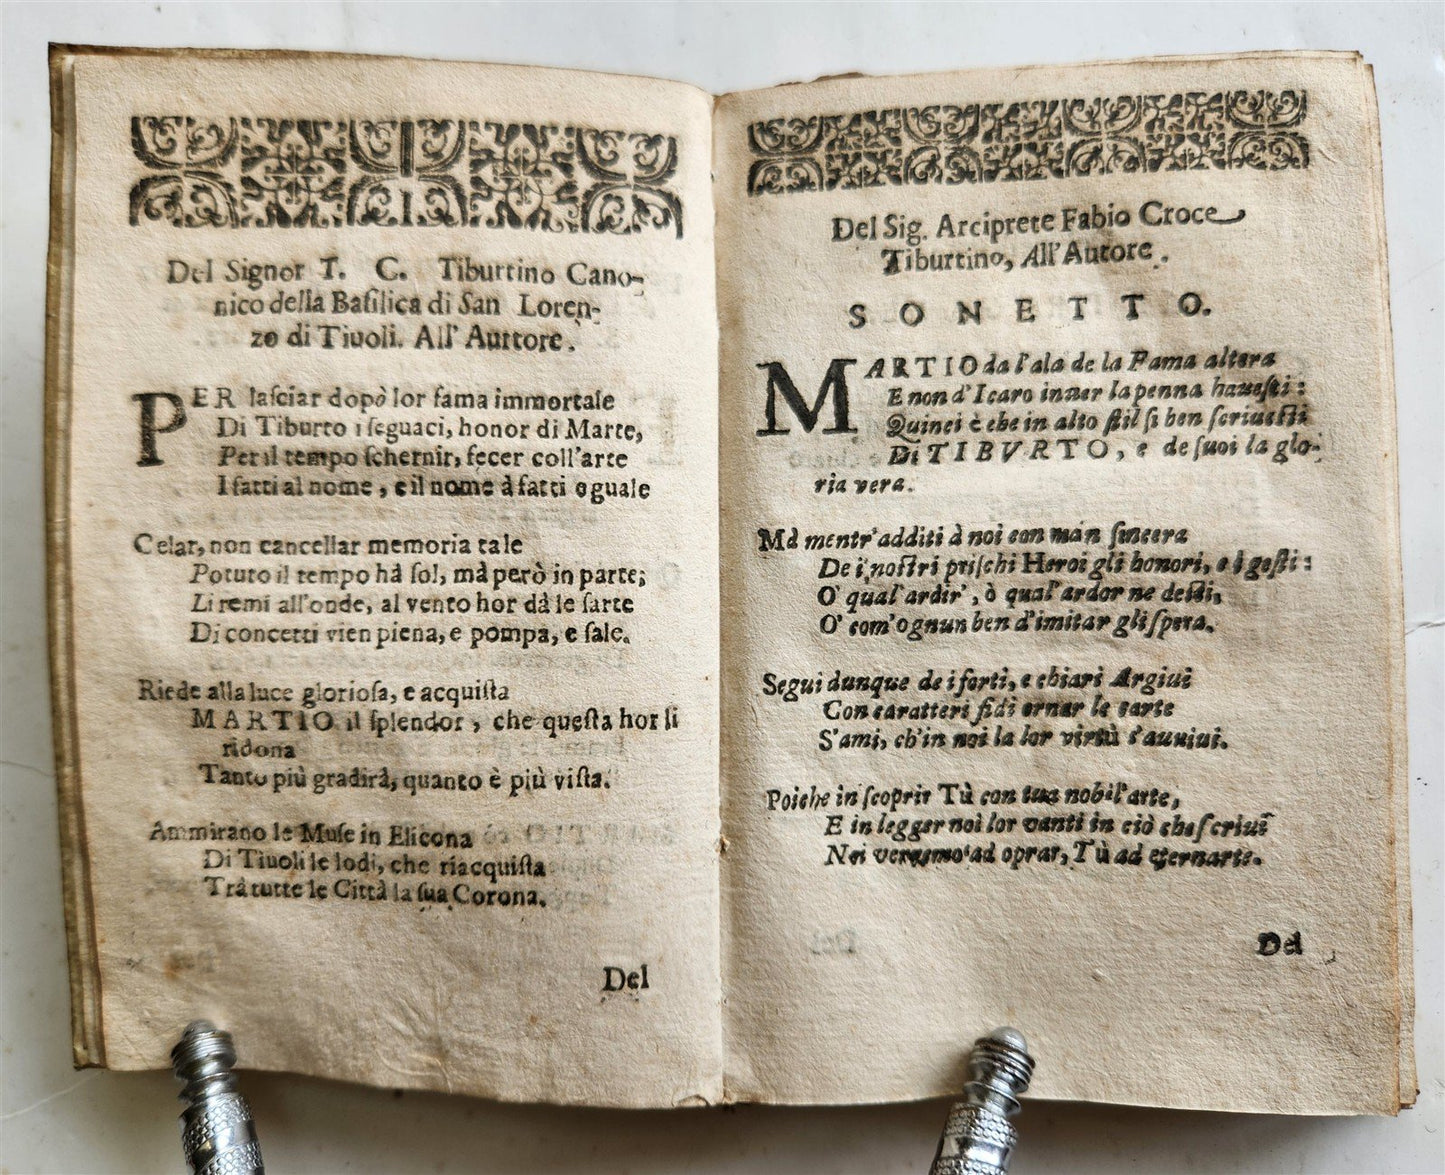 Del Signor T. C. Tiburtino Cano-
nico della Baſilica di San Loren-
zo di Tiuoli. All' Auttore.
PER laſciar dopò lor fama immortale
Di Tiburto i ſeguaci, honor di Marte,
Per il tempo ſchernir, fecer coll'arte
I fatti al nome, e il nome à fatti eguale
Celar, non cancellar memoria tale
Potuto il tempo hà ſol, mà però in parte;
Li remi all'onde, al vento hor dà le ſarte
Di concetti vien piena, e pompa, e ſale.
Riede alla luce glorioſa, e acquiſta
MARTIO il ſplendor, che queſta hor li
ridona
Tanto più gradirà, quanto è più viſta.
Ammirano le Muſe in Elicona
Di Tiuoli le lodi, che riacquiſta
Trà tutte le Città la ſua Corona.
Del
Del Sig. Arciprete Fabio Croce
Tiburtino, All' Autore.
SONETTO.
MARTIO da l'ala de la Fama altera
E non d'Icaro inuer la penna haueſti:
Quinci è che in alto ſtil ſi ben ſcriueſti
Di TIBVRTO, e de ſuoi la glo-
ria vera.
Mà mentr'additi à noi con man ſincera
De i noſtri priſchi Heroi gli honori, e i geſti:
O' qual'ardir', ò qual'ardor ne deſti,
O' com'ognun ben d'imitar gli ſpera.
Segui dunque de i forti, e chiari Argiui
Con caratteri fidi ornar le carte
S'ami, ch'in noi la lor virtù s'auuiui.
Poiche in ſcoprir Tù con tua nobil'arte,
E in legger noi lor vanti in ciò che ſcriui
Noi verremo ad oprar, Tù ad eternarte.
Del